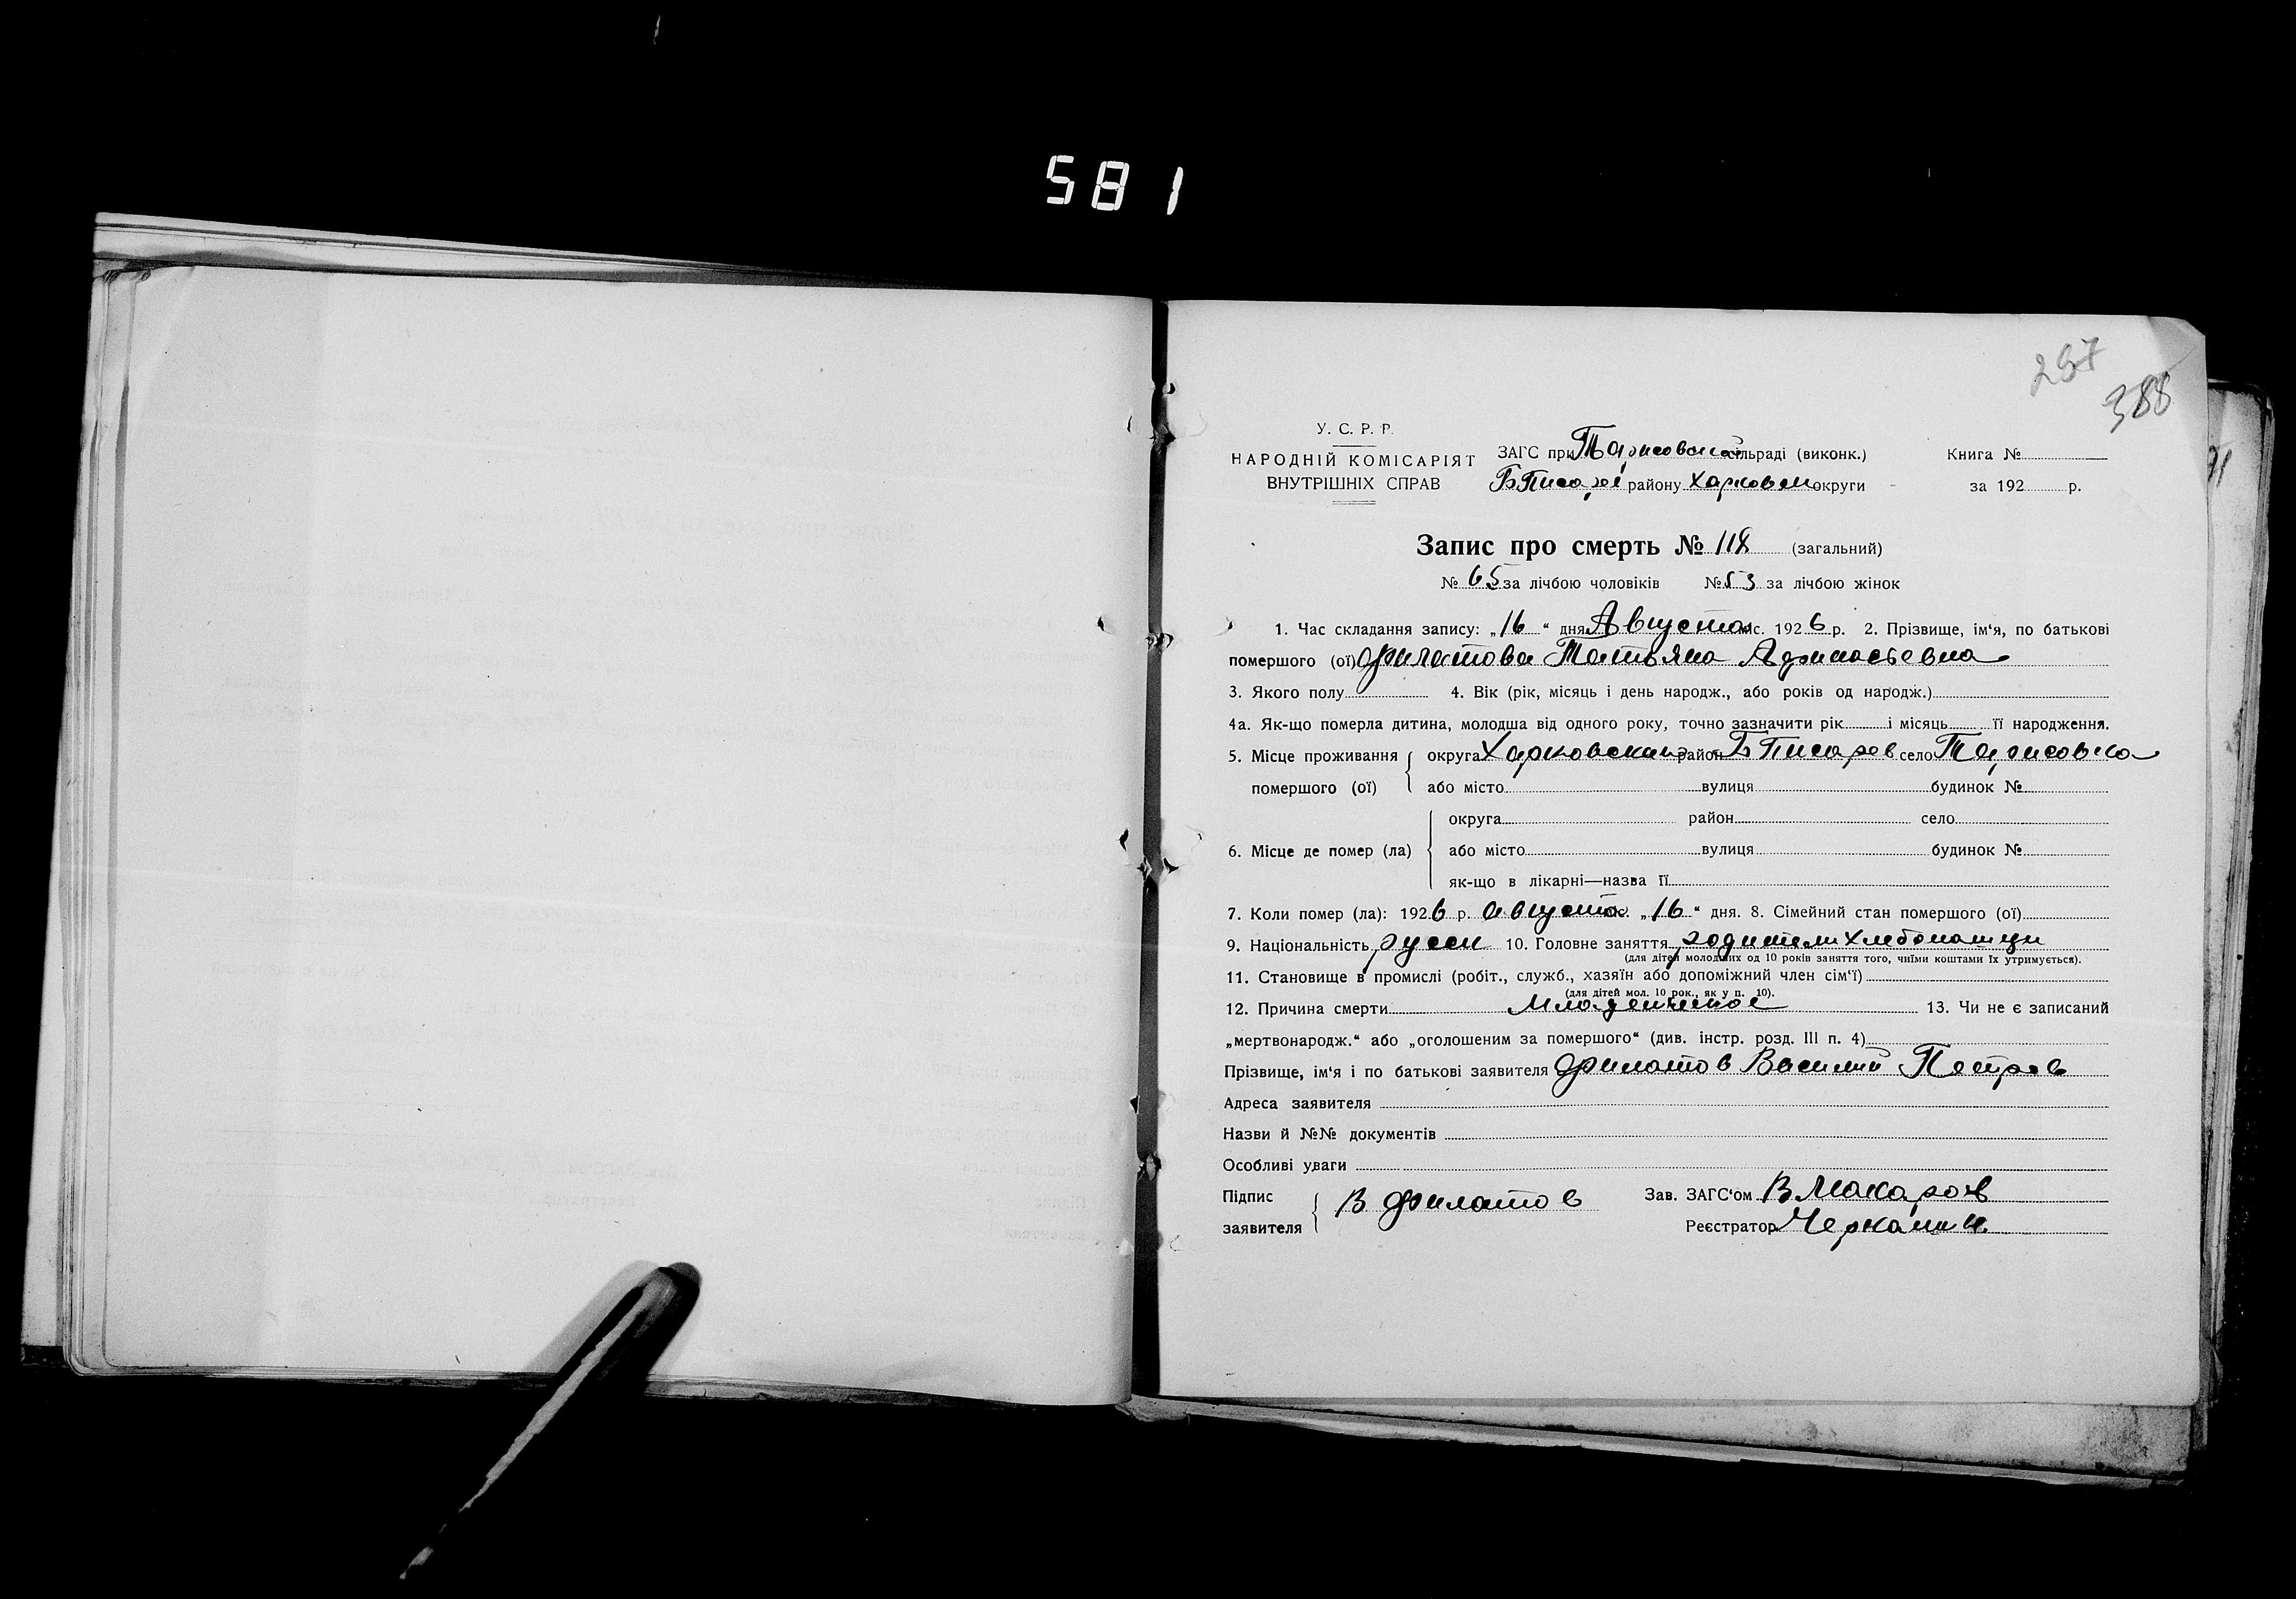 581
257
388
У. С. Р. Р.
НАРОДНІЙ КОМІСАРІЯТ
ВНУТРІШНІХ СПРАВ
ЗАГС при сільраді (виконк.)
Б Писар району Харковск округи
Книга №
за 192 р.
Запис про смерть № 118 (загальний)
№ 65 за лічбою чоловіків № 53 за лічбою жінок
1. Час складання запису: „16“ дня Августа міс. 1926 р. 2. Прізвище, ім‘я, по батькові
помершого (ої) Филатова Татьяна
3. Якого полу 4. Вік (рік, місяць і день народж., або років од народж.)
4а. Як-що померла дитина, молодша від одного року, точно зазначити рік і місяць її народження.
5. Місце проживання округа Харковская район Б Писарев село
помершого (ої) або місто вулиця будинок №
округа район село
6. Місце де помер (ла) або місто вулиця будинок №
як-що в лікарні—назва її
7. Коли помер (ла): 1926 р. августа „16“ дня. 8. Сімейний стан помершого (ої)
9. Національність русск 10. Головне заняття родители хлебопашцы
(для дітей молодших од 10 років заняття того, чиїми коштами їх утримується).
11. Становище в промислі (робіт., служб., хазяїн або допоміжний член сім‘ї)
(для дітей мол. 10 рок., як у п. 10).
12. Причина смерти Младенческое 13. Чи не є записаний
„мертвонародж.“ або „оголошеним за помершого“ (див. інстр. розд. III п. 4)
Прізвище, ім‘я і по батькові заявителя Филатов Василий Петров
Адреса заявителя
Назви й №№ документів
Особливі уваги
Підпис
заявителя В Филатов
Зав. ЗАГС‘ом В Макаров
Реєстратор